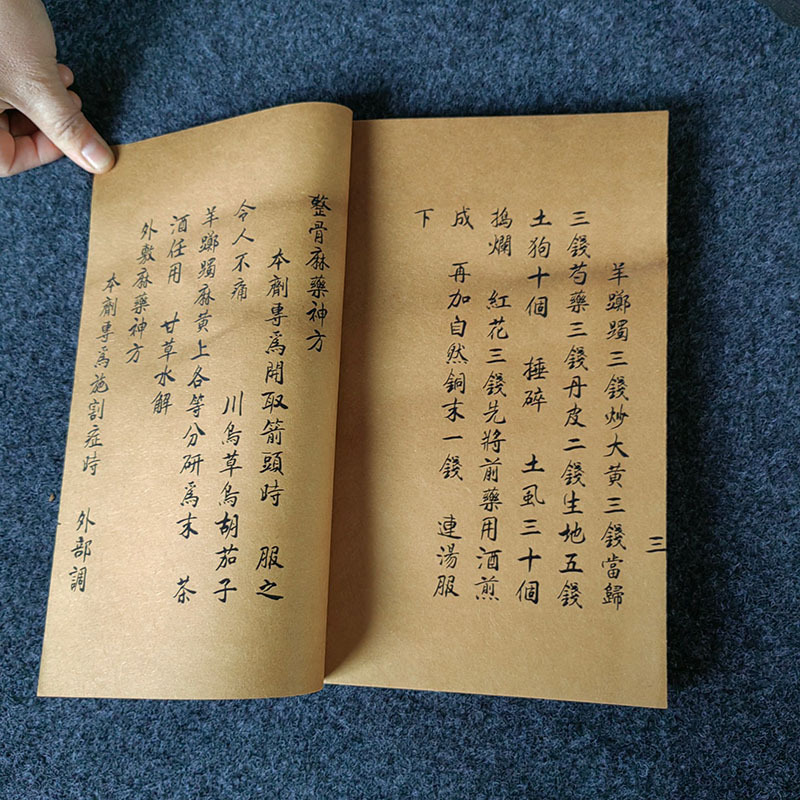 三
羊躑躅三錢炒大黃三錢當歸
三錢芍藥三錢丹皮二錢生地五錢
土狗十個 捶碎 土虱三十個
搗爛 紅花三錢先將前藥用酒煎
成 再加自然銅末一錢 連湯服
下
整骨麻藥神方
本劑專爲開取箭頭時 服之
令人不痛 川烏草烏胡茄子
羊躑躅麻黃上各等分研爲末 茶
酒任用 甘草水解
外敷麻藥神方
本劑專爲施割症時 外部調